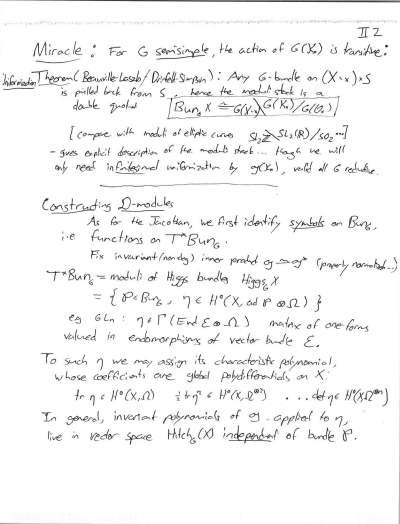 II 2
Miracle: For G semisimple, the action of G(K_x) is transitive:
Uniformization Theorem (Beauville-Laszlo / Drinfeld-Simpson): Any G-bundle on (X∖x)×S
is pulled back from S, hence the moduli stack is a
double quotient Bun_G X ≅ G(X∖x)\G(K_x)/G(O_x)
[compare with moduli of elliptic curves SL_2 Z\SL_2(R)/SO_2 ...]
- gives explicit description of the moduli stack... though we will
only need infinitesimal uniformization by g(K_x), valid all G reductive.
Constructing D-modules
As for the Jacobian, we first identify symbols on Bun_G,
i.e functions on T*Bun_G.
Fix invariant (nondeg) inner product g ≃ g* (properly normalized...)
T*Bun_G = moduli of Higgs bundles Higgs_G X
= { P ∈ Bun_G, η ∈ H⁰(X, ad P ⊗ Ω) }
eg GLn: η ∈ Γ(End E ⊗ Ω) matrix of one forms
valued in endomorphisms of vector bundle E.
To such η we may assign its characteristic polynomial,
whose coefficients are global polydifferentials on X:
tr η ∈ H⁰(X, Ω) ½ tr η² ∈ H⁰(X, Ω^⊗2) ... det η ∈ H⁰(X, Ω^⊗n)
In general, invariant polynomials of g applied to η,
live in vector space Hitch_G(X) independent of bundle P.